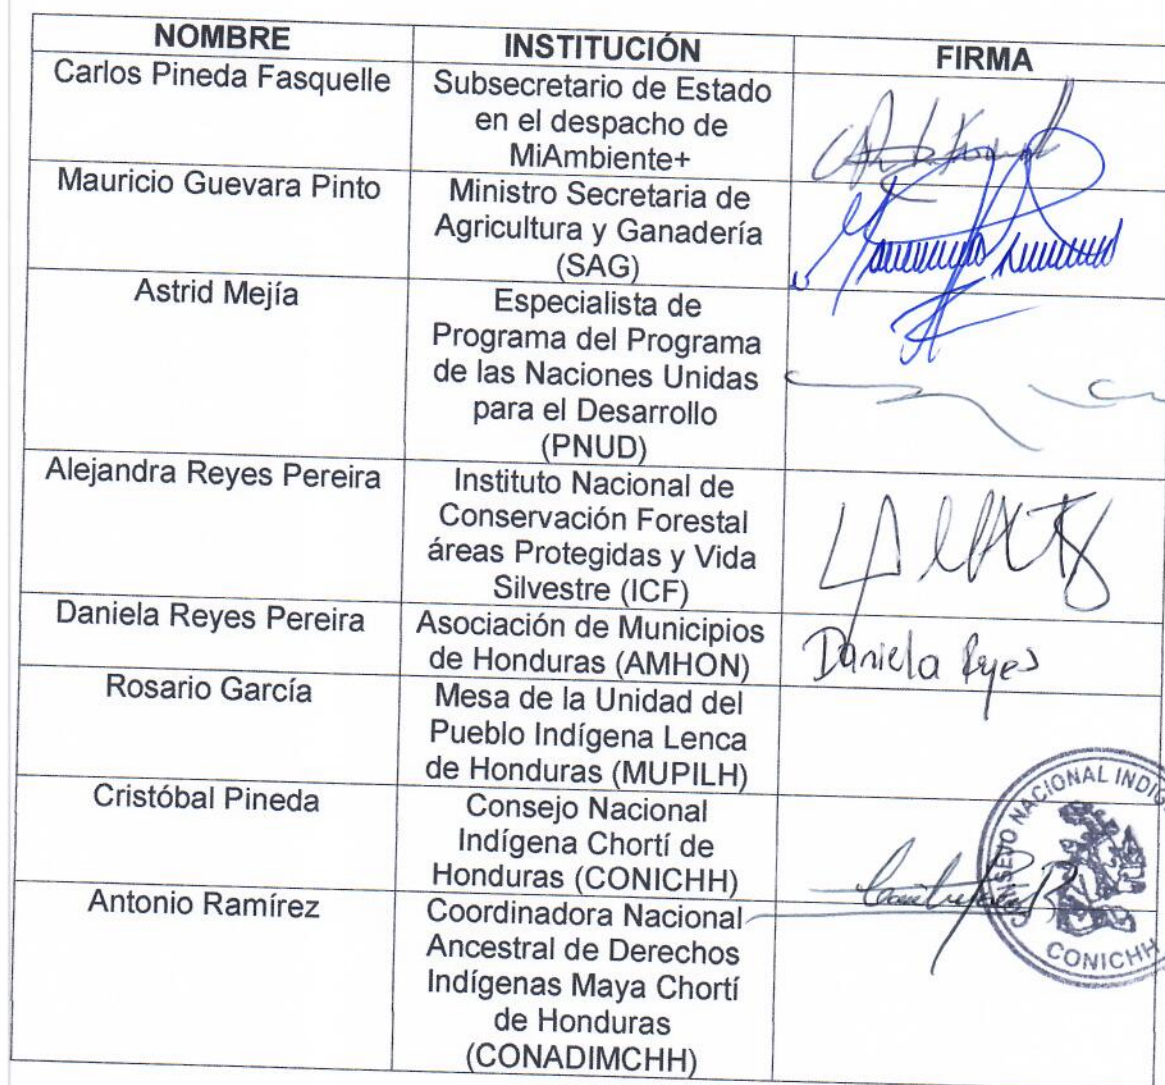 NOMBRE INSTITUCIÓN FIRMA
Carlos Pineda Fasquelle
Subsecretario de Estado
en el despacho de
MiAmbiente+
Mauricio Guevara Pinto
Ministro Secretaria de
Agricultura y Ganadería
(SAG)
Astrid Mejía
Especialista de
Programa del Programa
de las Naciones Unidas
para el Desarrollo
(PNUD)
Alejandra Reyes Pereira
Instituto Nacional de
Conservación Forestal
áreas Protegidas y Vida
Silvestre (ICF)
Daniela Reyes Pereira
Asociación de Municipios
de Honduras (AMHON)
Daniela Reyes
Rosario García
Mesa de la Unidad del
Pueblo Indígena Lenca
de Honduras (MUPILH)
Cristóbal Pineda
Consejo Nacional
Indígena Chortí de
Honduras (CONICHH)
CONSEJO NACIONAL INDIG
CONICHH
Antonio Ramírez
Coordinadora Nacional
Ancestral de Derechos
Indígenas Maya Chortí
de Honduras
(CONADIMCHH)